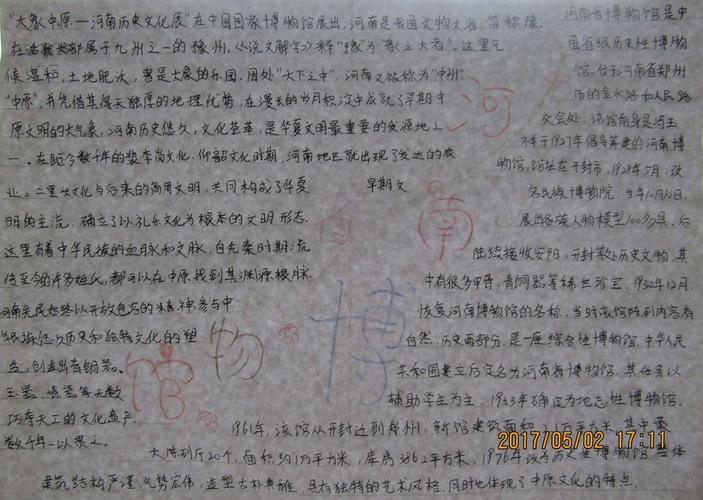 "大象中原—河南历史文化展"在中国国家博物馆展出，河南是我国文物大省，简称豫，
在远古大部属于九州之一的豫州。《说文解字》释"豫"为"象之大者"。这里气
候温和，土地肥沃，曾是大象的乐园。因处"天下之中"，河南又被称为"中州"
"中原"，并凭借其得天独厚的地理优势，在漫长的岁月积淀中成就了早期中
原文明的大气象。河南历史悠久，文化荟萃，是华夏文明最重要的发源地之
一。在距今数千年的裴李岗文化、仰韶文化时期，河南地区就出现了发达的农
业。二里头文化与后来的商周文明，共同构成了华夏
早期文
明的主流，确立了以礼乐文化为根本的文明形态。
这里有着中华民族的血脉和文脉，自先秦时期流
传至今的许多姓氏，都可以在中原找到其渊源根脉。
河南先民始终以开放包容的精神参与中
华民族悠久历史和独特文化的塑
造，创造出青铜器、
玉器、瓷器等无数
巧夺天工的文化遗产，
数千年一以贯之。
河南省博物馆是中
国省级历史性博物
馆。位于河南省郑州
市的金水路和人民路
交会处。该馆前身是冯玉
祥于1927年倡导筹建的河南博
物馆，馆址在开封市。1928年5月，改
名民族博物院，当年10月10日，
展出各族人物模型100多具。后
陆续接收安阳、开封等处历史文物，其
中有很多甲骨、青铜器等稀世珍宝。1930年12月
恢复河南博物馆的名称。当时该馆陈列内容有
自然、历史两部分，是一座综合性博物馆。中华人民
共和国建立后定名为河南省博物馆。其任务以
辅助学生为主。1953年确定为地志性博物馆。
1961年，该馆从开封迁到郑州，新馆建筑面积
1万平方米，其中最
大陈列厅20个，面积约1万平方米，库房3862平方米。1976年改为历史性博物馆。主体
建筑结构严谨，气势宏伟，造型古朴典雅，具有独特的艺术风格，同时也体现了中原文化的特点。
河
南
省
博
物
馆
2017/05/02 17:11